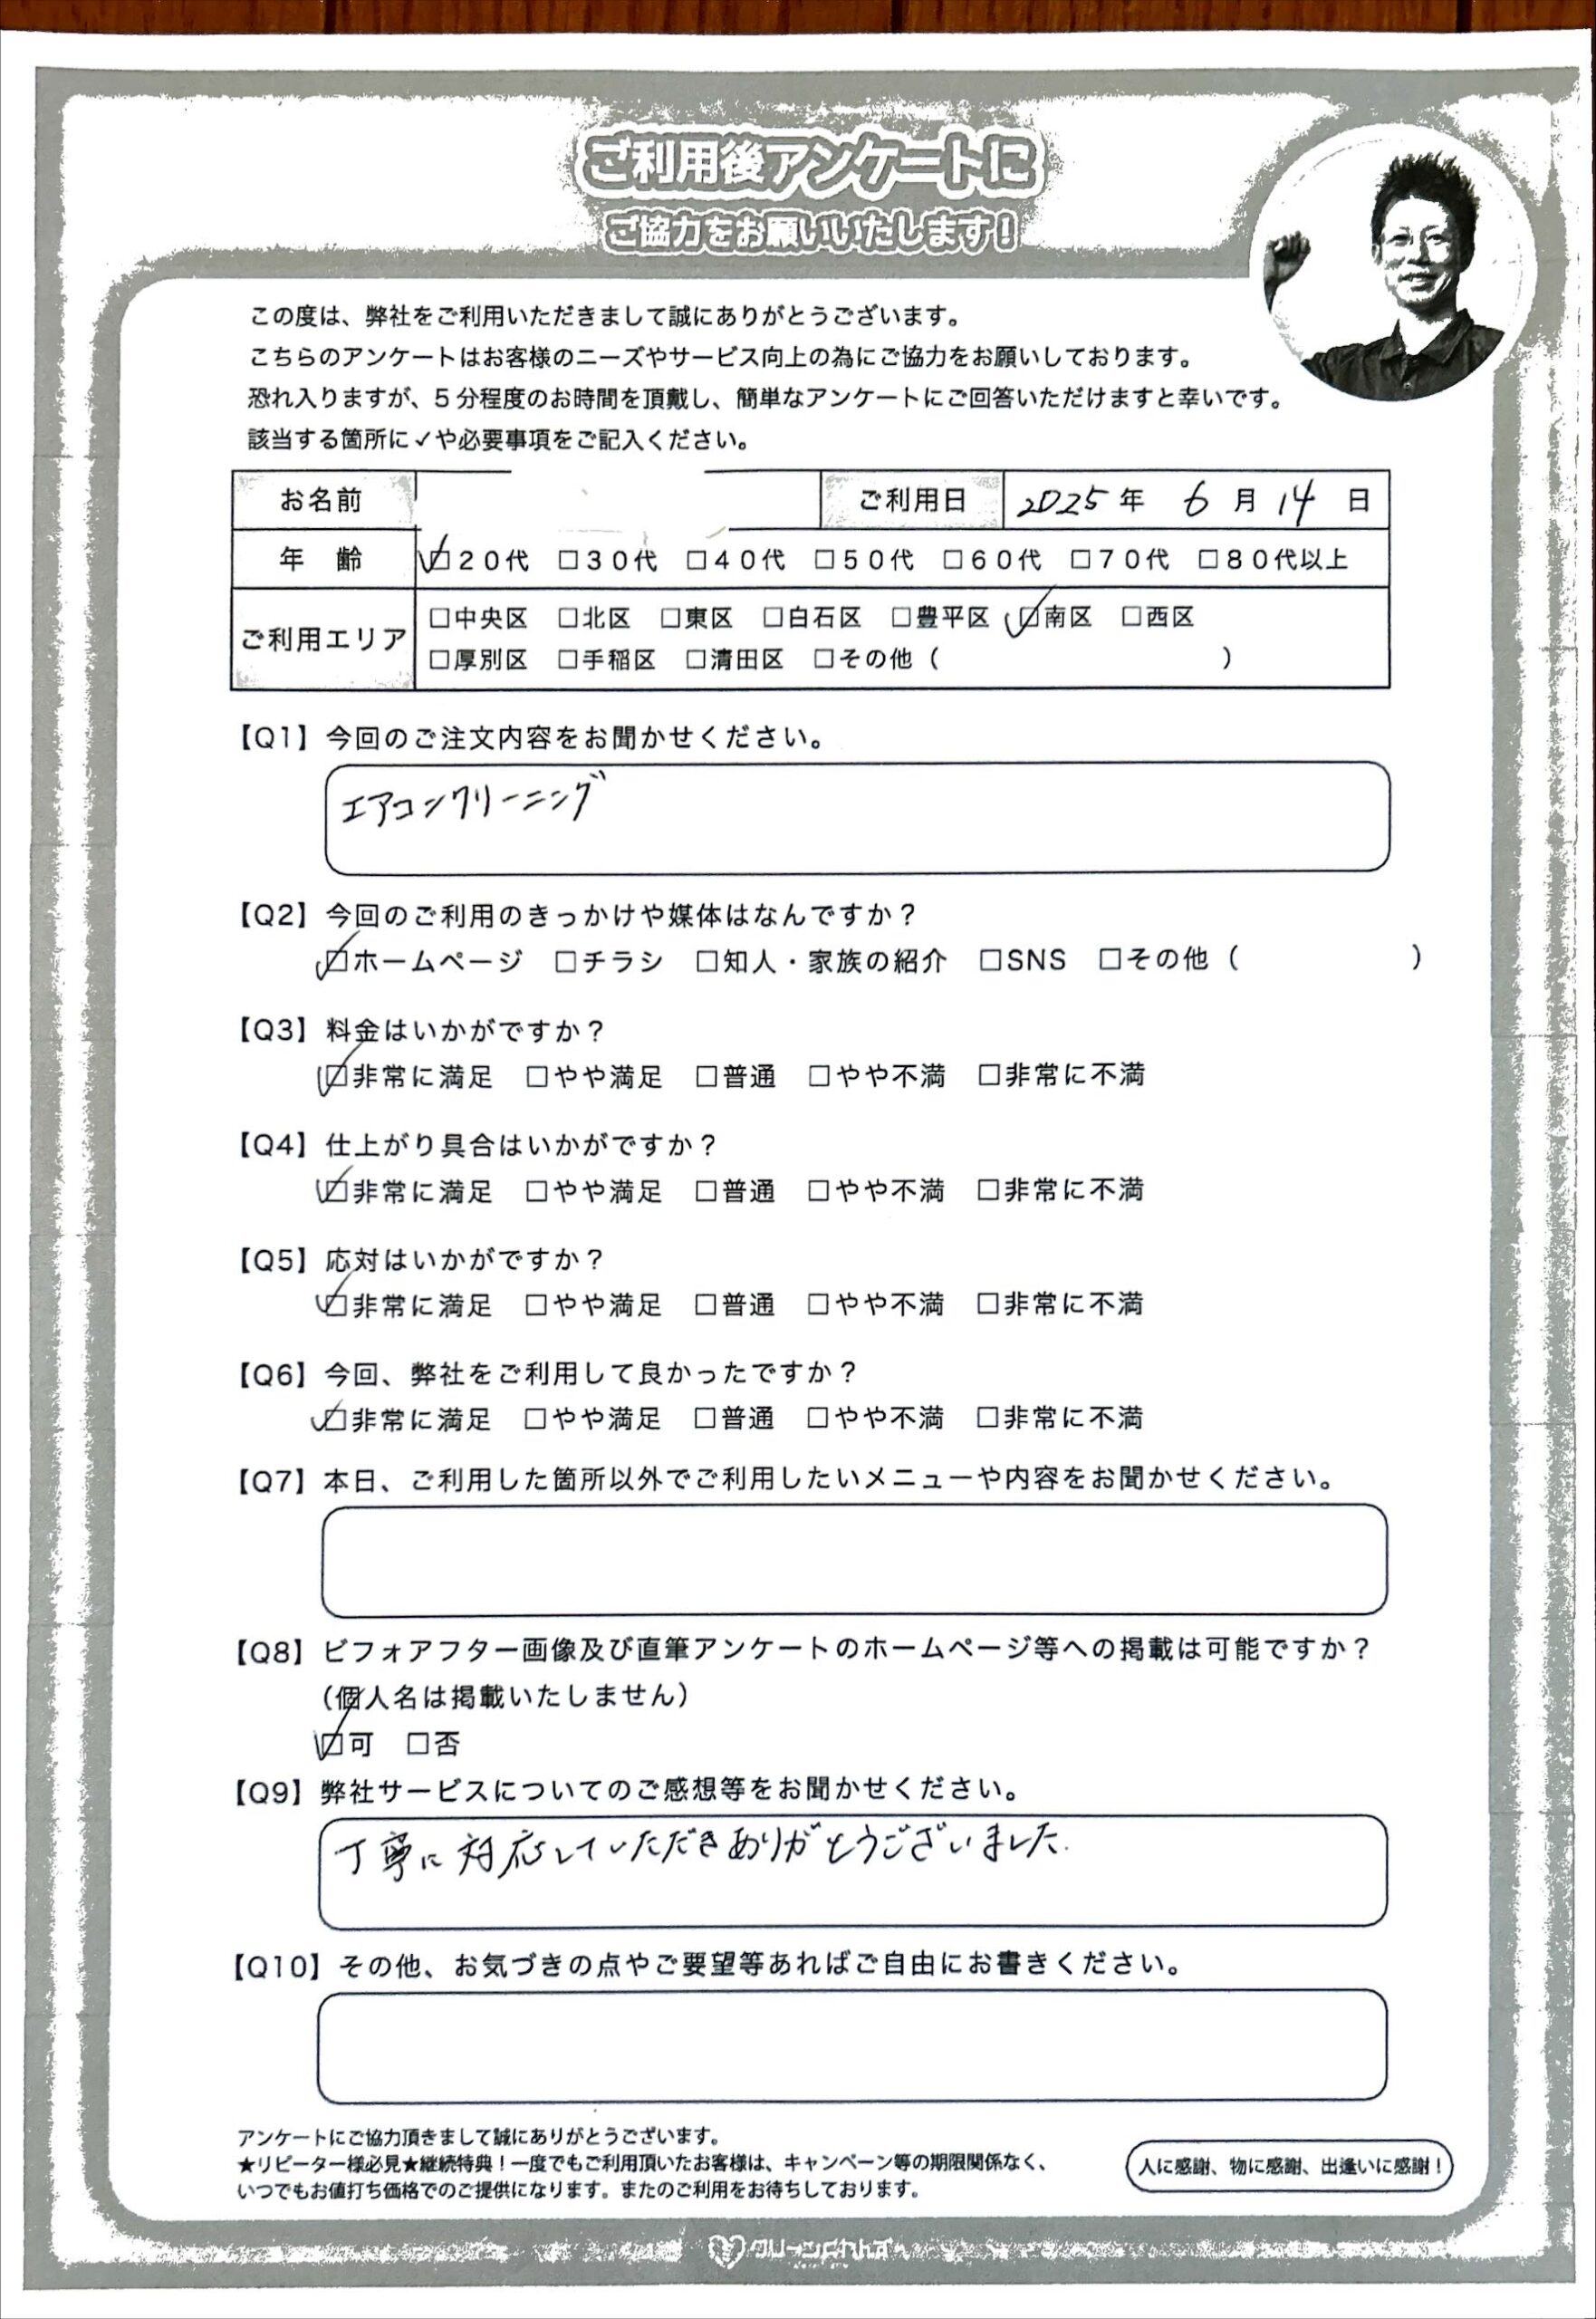 ご利用後アンケートに
ご協力をお願いいたします!
この度は、弊社をご利用いただきまして誠にありがとうございます。
こちらのアンケートはお客様のニーズやサービス向上の為にご協力をお願いしております。
恐れ入りますが、5分程度のお時間を頂戴し、簡単なアンケートにご回答いただけますと幸いです。
該当する箇所に✓や必要事項をご記入ください。
お名前 ご利用日 2025年 6月 14日
年 齢 ☑20代 □30代 □40代 □50代 □60代 □70代 □80代以上
ご利用エリア
□中央区 □北区 □東区 □白石区 □豊平区 ☑南区 □西区
□厚別区 □手稲区 □清田区 □その他( )
【Q1】今回のご注文内容をお聞かせください。
エアコンクリーニング
【Q2】今回のご利用のきっかけや媒体はなんですか?
☑ホームページ □チラシ □知人・家族の紹介 □SNS □その他( )
【Q3】料金はいかがですか?
☑非常に満足 □やや満足 □普通 □やや不満 □非常に不満
【Q4】仕上がり具合はいかがですか?
☑非常に満足 □やや満足 □普通 □やや不満 □非常に不満
【Q5】応対はいかがですか?
☑非常に満足 □やや満足 □普通 □やや不満 □非常に不満
【Q6】今回、弊社をご利用して良かったですか?
☑非常に満足 □やや満足 □普通 □やや不満 □非常に不満
【Q7】本日、ご利用した箇所以外でご利用したいメニューや内容をお聞かせください。
【Q8】ビフォアフター画像及び直筆アンケートのホームページ等への掲載は可能ですか?
(個人名は掲載いたしません)
☑可 □否
【Q9】弊社サービスについてのご感想等をお聞かせください。
丁寧に対応していただきありがとうございました.
【Q10】その他、お気づきの点やご要望等あればご自由にお書きください。
アンケートにご協力頂きまして誠にありがとうございます。
★リピーター様必見★継続特典!一度でもご利用頂いたお客様は、キャンペーン等の期限関係なく、
いつでもお値打ち価格でのご提供になります。またのご利用をお待ちしております。
人に感謝、物に感謝、出逢いに感謝!